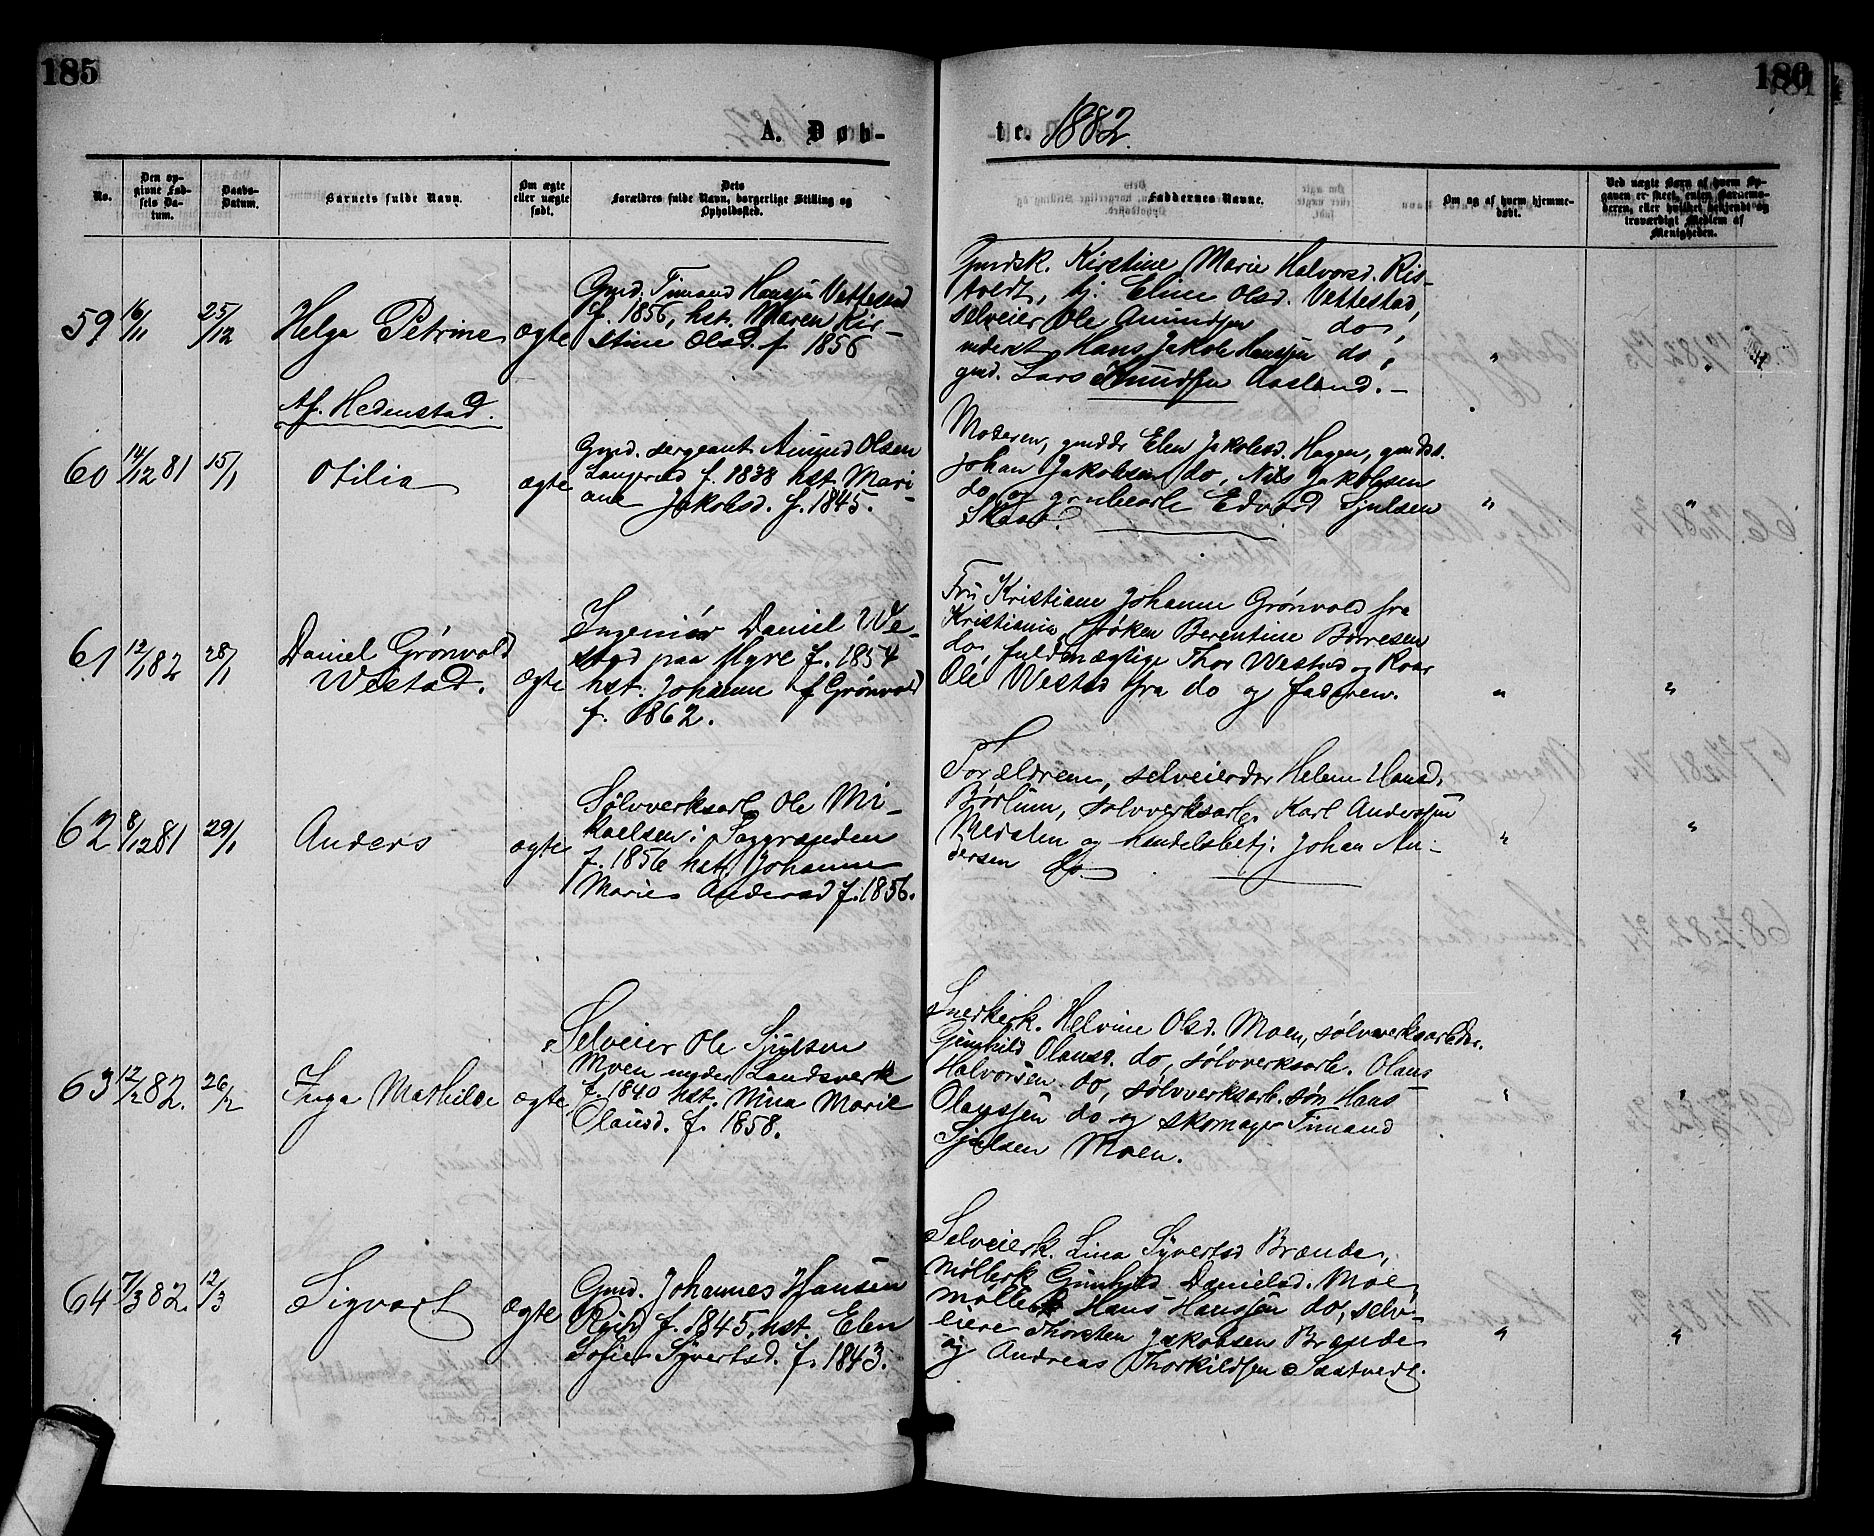 185
186
A. Døb-
te. 1882.
No.
Den op-
givne Fød-
sels Da-
tum.
Daabs-
Datum.
Barnets fulde Navn.
Om ægte
eller uægte
født.
Dets
Forældres fulde Navn, borgerlige Stilling og
Opholdssted.
Faddernes Navne.
Om og af hvem hjemme-
døbt.
Ved uægte Børn af hvem Op-
gaven er skeet, enten Barnemo-
deren, eller hvilket bekjendt og
troværdigt Medlem af
Menigheden.
59 16/11 25/12 Helga Petrine ægte
Gmd. Timand Hansen Vettestad
f. 1856, hst. Maren Kir-
stine Olsd. f. 1856
Gmdsk. Kirstine Marie Halvorsd. Ris-
tvedt, pj. Eline Olsd. Vettestad,
selveier Ole Amundsen do,
Hans Jakob Hansen do,
gmd. Lars Knudsen Aasland.
Af. Hedenstad.
60 14/12 81 15/1 Otilia ægte
Gmd. sergeant Amund Olsen
Langerud f. 1838 hst. Mari-
ane Jakobsd. f. 1845.
Moderen, gmddr Elen Jakobsd. Hagen, gmdss.
Johan Jakobsen do, Nils Jakobsen
do og grubearb. Edvard Sjulsen
Skaar.
61 12/1 82 28/1 Daniel Grønvold
Westad. ægte
Ingeniør Daniel We-
stad paa Myre f. 1854
hst. Johanne f Grønvold
f. 1862.
Fru Kristiane Johanne Grønvold fra
Kristiania, frøken Berentine Børresen
do, fuldmægtige Thor Westad og Roar
Ole Westad fra do og faderen.
62 8/12 81 29/1 Anders ægte
Sølvverksarb. Ole Mi-
kaelsen i Saggrænden
f. 1856 hst. Johanne
Marie Andersd f. 1856.
Forældrene, selveierdtr Helene Hansd.
Børtum, sølvverksarb. Karl Anderssen
Mersten og handelsbetj. Johan An-
dersen do.
63 12/2 82. 26/2 Inga Mathilde ægte
Selveier Ole Sjulsen
Moen under Landsverk
f. 1840 hst. Nina Marie
Olausd. f. 1858.
Snedkerk. Helvine Olsd. Moen, sølvverksarbdtr.
Gunhild Olausd. do, sølvverksarb. Olaus
Halvorsen do, sølvverksarb. søn Hans
Olaussen do og skomager Timand
Sjulsen Moen.
64 7/3 82. 12/3 Sigvart ægte
Gmd. Johannes Hansen
f. 1845, hst. Elen
Sofie Syvertsd. f. 1843.
Selveierk. Lina Syvertsd Brænde,
møllerk Gunhild Danielsd. Moe,
møller Hans Hanssen do, selv-
eiere Thorsten Jakobsen Brænde
og Andreas Thorkildsen Saatvedt.